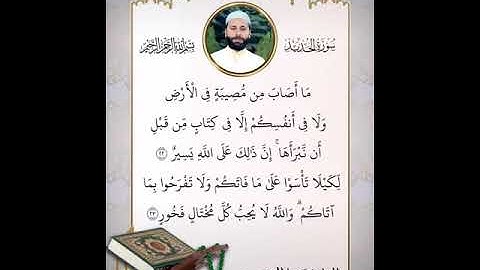 سورة الحديد
بسم الله الرحمن الرحيم
مَا أَصَابَ مِن مُّصِيبَةٍ فِي الْأَرْضِ
وَلَا فِي أَنفُسِكُمْ إِلَّا فِي كِتَابٍ مِّن قَبْلِ
أَن نَّبْرَأَهَا ۚ إِنَّ ذَٰلِكَ عَلَى اللَّهِ يَسِيرٌ ﴿٢٢﴾
لِّكَيْلَا تَأْسَوْا عَلَىٰ مَا فَاتَكُمْ وَلَا تَفْرَحُوا بِمَا
آتَاكُمْ ۗ وَاللَّهُ لَا يُحِبُّ كُلَّ مُخْتَالٍ فَخُورٍ ﴿٢٣﴾